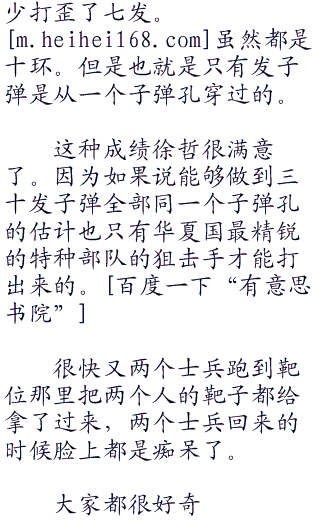 少打歪了七发。
[m.heihei168.com]虽然都是
十环。但是也就是只有发子
弹是从一个子弹孔穿过的。
这种成绩徐哲很满意
了。因为如果说能够做到三
十发子弹全部同一个子弹孔
的估计也只有华夏国最精锐
的特种部队的狙击手才能打
出来的。[百度一下“有意思
书院”]
很快又两个士兵跑到靶
位那里把两个人的靶子都给
拿了过来，两个士兵回来的
时候脸上都是痴呆了。
大家都很好奇